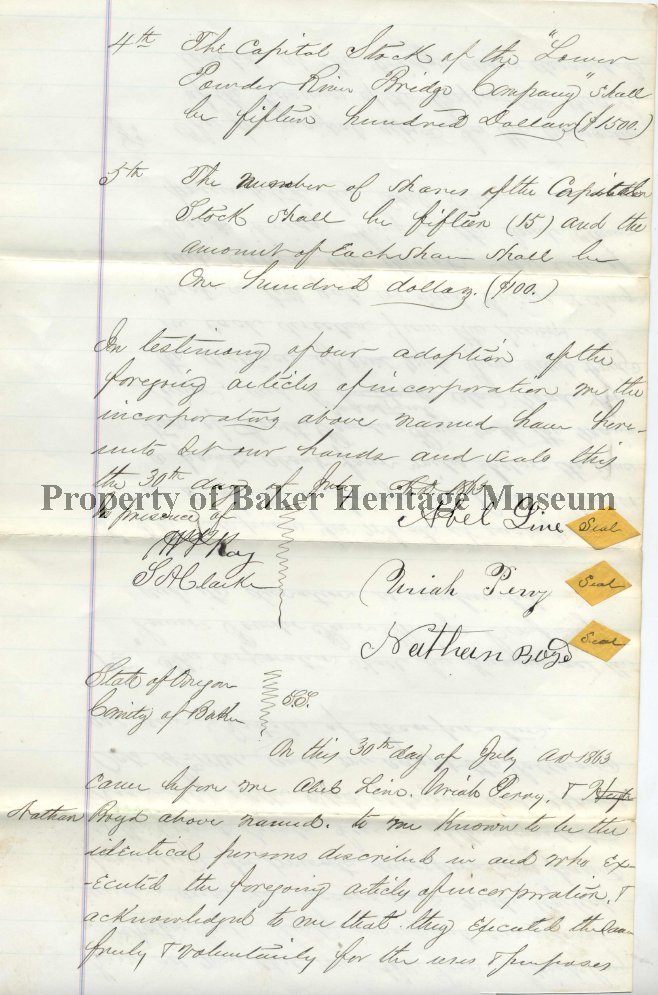 4th The Capital Stock of the "Lower
Powder River Bridge Company" shall
be fifteen hundred Dollars ($1500.)
5th The number of shares of the Capital
Stock shall be fifteen (15) and the
amount of Each share shall be
One hundred dollars. ($100.)
In testimony of our adoption of the
foregoing articles of incorporation we the
incorporators above named have here-
unto set our hands and seals this
the 30th day of July AD 1863
Property of Baker Heritage Museum
In presence of
Abel Line Seal
S A Clarke
Uriah Perry Seal
Nathan Boyd Seal
State of Oregon
County of Baker S.S.
On this 30th day of July AD 1863
came before me Abel Line. Uriah Perry. &
Nathan Boyd above named. to me Known to be the
identical persons described in and who Ex-
-ecuted the foregoing articles of incorporation. &
acknowledged to me that they Executed the same
freely & voluntarily for the uses & purposes